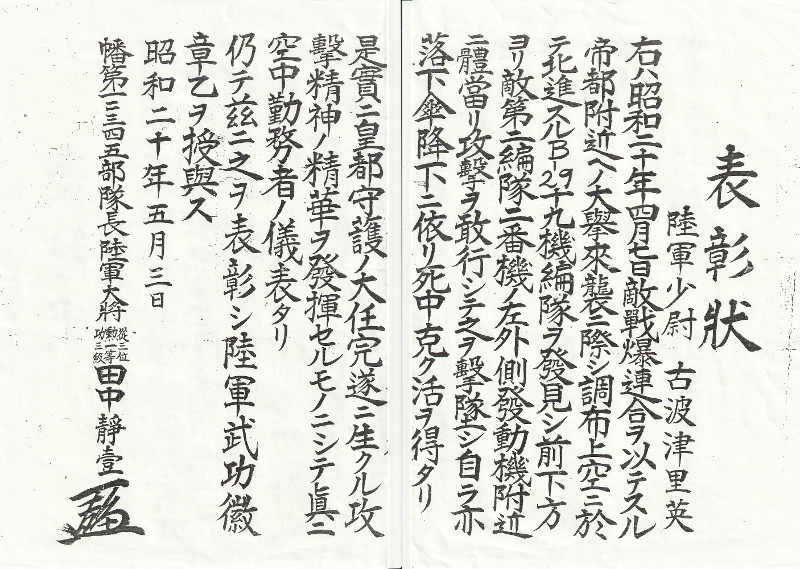 表彰状
陸軍少尉 古波津里英
右ハ昭和二十年四月七日敵戰爆連合ヲ以テスル
帝都附近ヘノ大擧來襲ニ際シ調布上空ニ於
テ北進スルB-29十九機編隊ヲ發見シ前下方
ヨリ敵第二編隊二番機ノ左外側發動機附近
ニ體當リ攻擊ヲ敢行シテ之ヲ擊墜シ自ラ亦
落下傘降下ニ依リ死中克ク活ヲ得タリ
是實ニ皇都守護ノ大任完遂ニ生クル攻
擊精神ノ精華ヲ發揮セルモノニシテ眞ニ
空中勤務者ノ儀表タリ
仍テ玆ニ之ヲ表彰シ陸軍武功徽
章乙ヲ授與ス
昭和二十年五月三日
幡第一二三四五部隊長陸軍大將 從三位 勳一等 功三級 田中靜壹